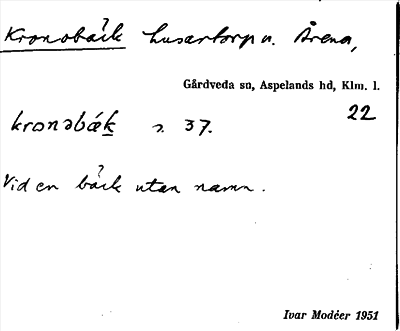 Kronobäck husartorp u. Årena,
Gårdveda sn, Aspelands hd, Klm. l.
22
kronəbæk s. 37.
Vid en bäck utan namn.
Ivar Modéer 1951